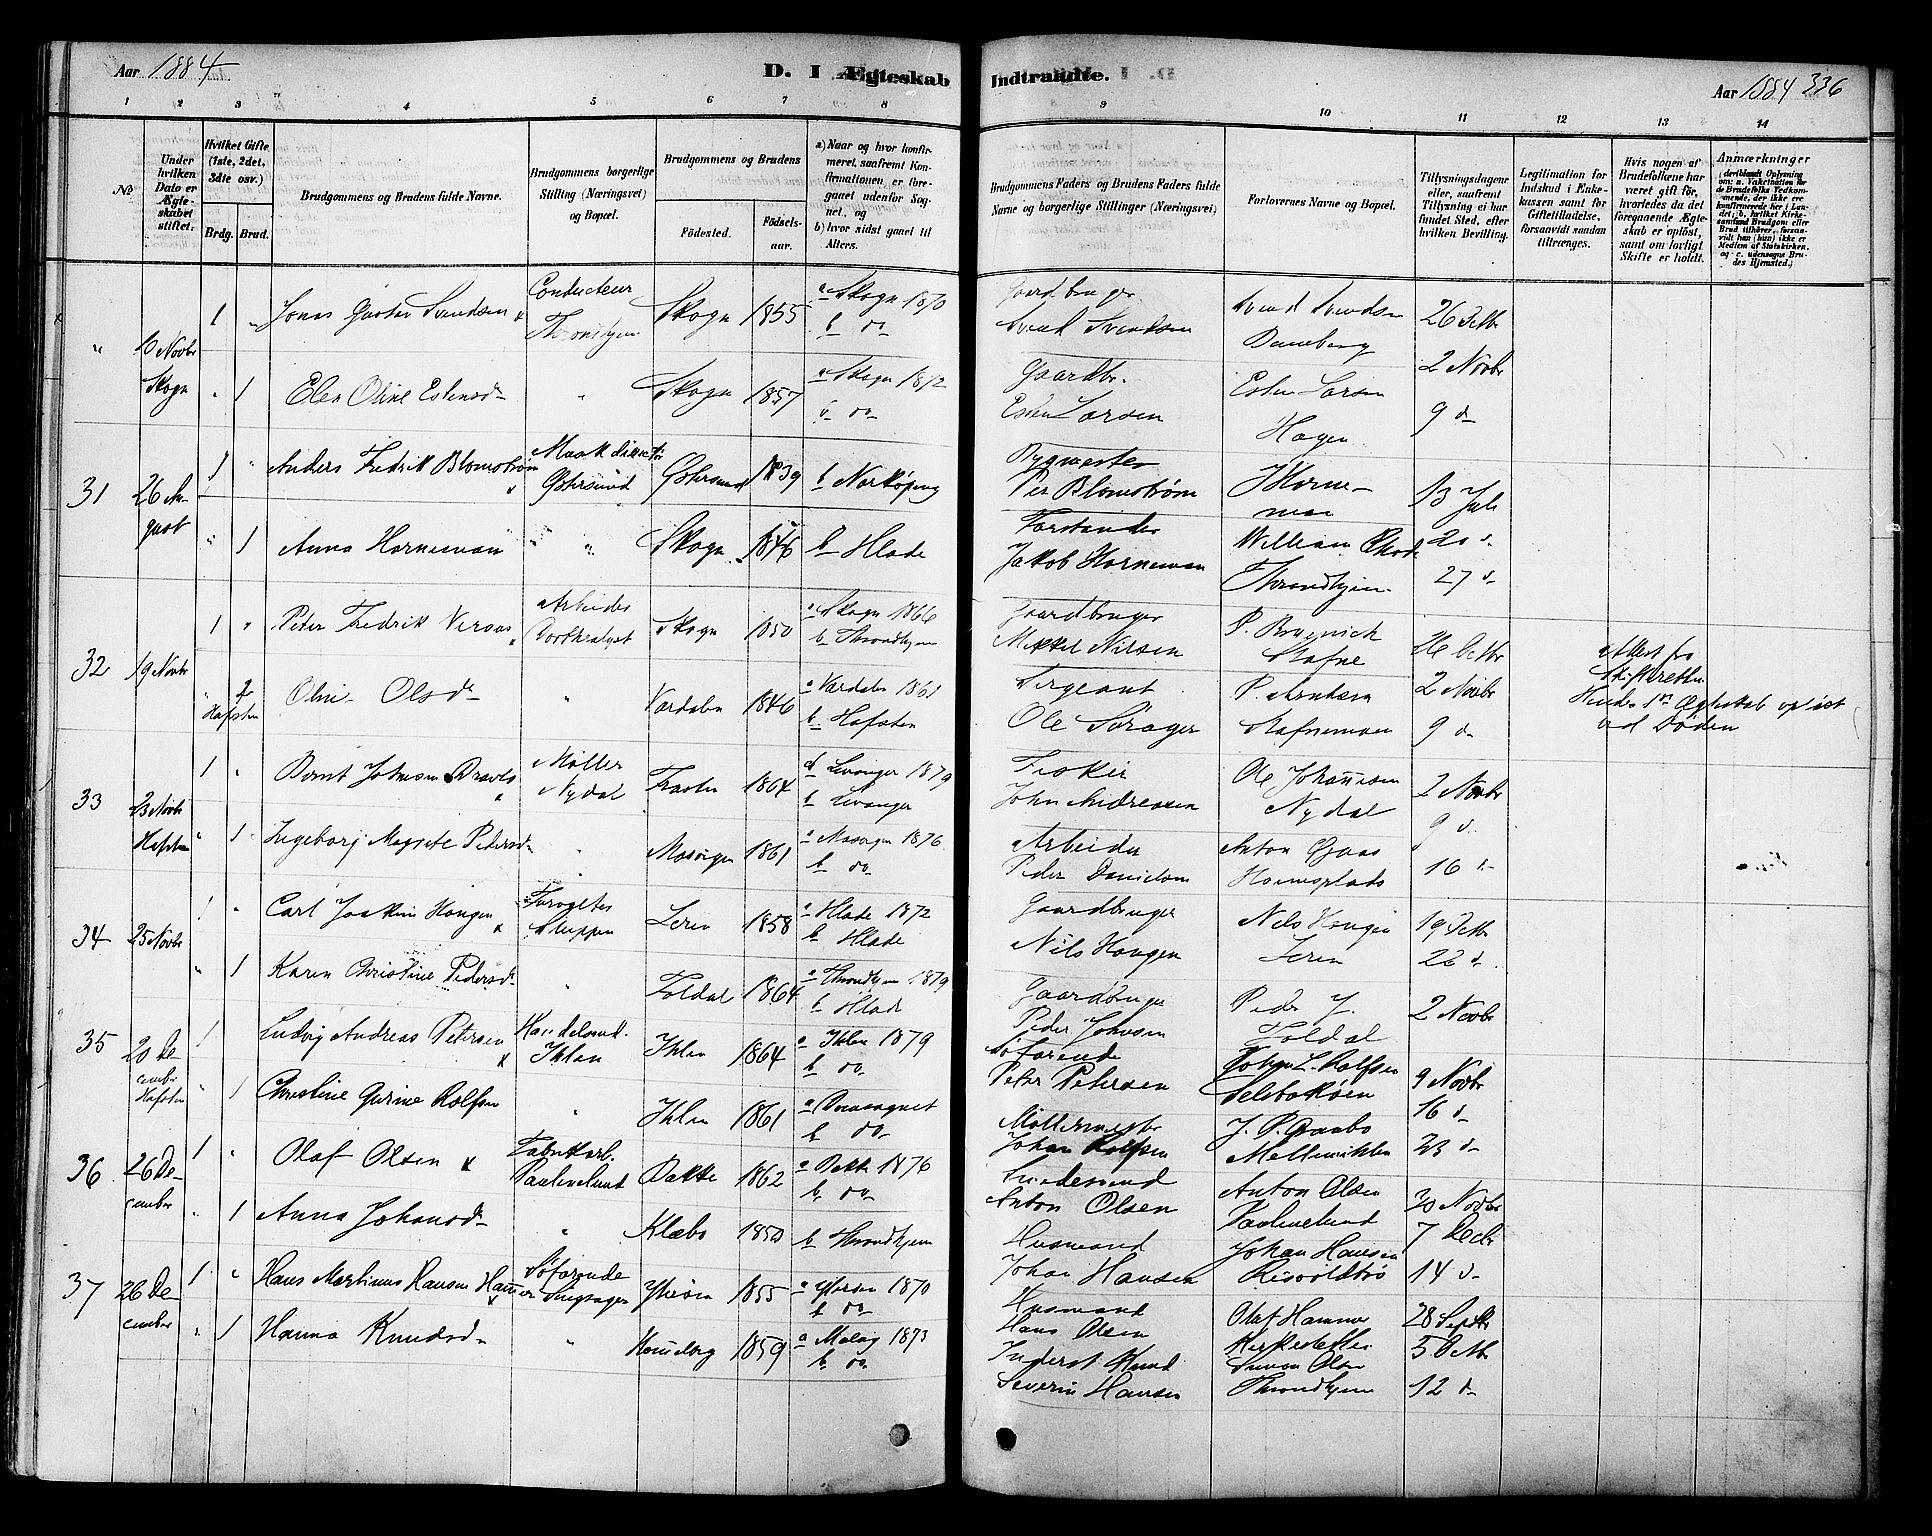 Aar 1884
D. I Ægteskab
Indtraadte.
Aar 1884 336
1 2 3 4 5 6 7 8
9 10 11 12 13 14
No
Under hvilken Dato er Ægteskabet stiftet.
Hvilket Gifte (1ste, 2det, 3die osv.)
Brdg. Brud.
Brudgommens og Brudens fulde Navne.
Brudgommens borgerlige Stilling (Næringsvei) og Bopæl.
Brudgommens og Brudens
Fødested.
Fødselsaar.
a) Naar og hvor konfirmeret, saafremt Konfirmationen er foregaaet udenfor Sognet, og
b) hvor sidst gaaet til Alters.
Brudgommens Faders og Brudens Faders fulde Navne og borgerlige Stillinger (Næringsvei)
Forlovernes Navne og Bopæl.
Tillysningsdagene eller, saafremt Tillysning ei har fundet Sted, efter hvilken Bevilling.
Legitimation for Indskud i Enkekassen samt for Giftetilladelse, forsaavidt saadan tiltrænges.
Hvis nogen af Brudefolkene har været gift før, hvorledes da det foregaaende Ægteskab er opløst, samt om lovligt Skifte er holdt.
Anmærkninger
" 6 Novbr Skogn
1 " Jonas Gustav Svendsen Conducteur Throndhjem Skogn 1855 a Skogn 1870 b do
Gaardbruger Svend Svendsen Svend Svendsen 26 Octbr
" 1 Elen Oline Estensd " Skogn 1857 a Skogn 1872 b do
Gaardbr. Esten Larsen Esten Larsen Hagen 2 Novbr 9 d
31 26 August
1 " Anders Fredrik Blomstrøm Østersund Østersund 1839 b Norkøping
Bygmester Per Blomstrøm J Horneman 13 Juli
" 1 Anna Horneman " Skogn 1846 b Hlade
Forstander Jakob Horneman William Throndhjem 20 d 27 d
32 19 Novbr
1 " Peter Fredrik Arbeider Skogn 1850 a Skogn 1866 b Throndhjem
Gaardbruger Mikkel Nilsen P. 26 Octbr
" 2 Hafsten Oline Olsd " Værdalen 1846 a Værdalen 1861 b Hafsten
Sergeant Ole P. Arntsen 2 Novbr 9 d
Attest fra Skifteretten Hendes 1ste Ægteskab opløst ved Døden
33 23 Novbr Hafsten
1 " Bernt Johnsen Møller Nydal Frosten 1864 a Levanger 1879 b Levanger
Fisker John Andreassen Ole Johannesen Nydal 2 Novbr 9 d.
" 1 Ingeborg Magrete Pedersd " Mosvigen 1861 a Mosvigen 1876 b do
Arbeider Peder Danielsen Anton 16 d
34 25 Novbr
1 " Carl Joakim Haugen Sluppen Leren 1858 a Hlade 1872 b Hlade
Gaardbruger Nils Haugen Nils Haugen Leren 19 Octbr 22 d.
" 1 Karen Christine Pedersd " Foldal 1864 a Throndhjem 1879 b Hlade
Gaardbruger Peder Johnsen Peder J. Foldal 2 Novbr
35 20 December Hafsten
1 Ludvig Andreas Petersen Handelsmd. Ihlen Ihlen 1864 a Ihlen 1879 b do
Søfarende Peter Petersen Johan L. Rolfsen 9 Novbr
" 1 Christine Gurine Rolfsen " Ihlen 1861 a Domsognet b do
Møllermester Johan Rolfsen 16 d 23 d
36 26 December
1 " Olaf Olsen Fabrikarb. Paulinelund Bakke 1862 a Bakke 1876 b do
Anton Olsen Anton Olsen Paulinelund 30 Novbr
" 1 Anna Johansd " Klæbo 1850 b Throndhjem
Husmand Johan Hansen Johan Hansen 7 Decbr 14 d
37 26 December
1 " Hans Martinus Hansen Hammer Søfarende Singsager Ytterøen 1855 a Ytterøen 1870 b do
Husmand Hans Olsen Olaf Hammer 28 Septbr
" 1 Hanna Knudsd " 1859 a Malvig 1873 b do
Inderst Knud Severin Hansen Simon Olsen Throndhjem 5 Octbr 12 d